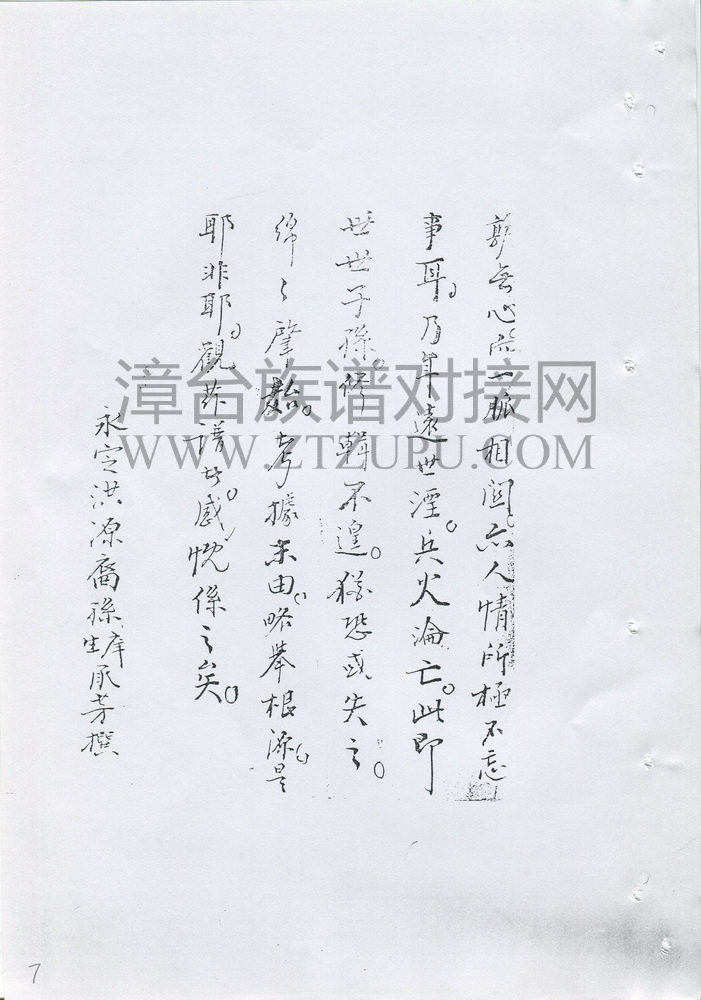 無心一脈相関亦人情所極不忘
事耳。乃年遠世湮。兵火淪亡。此即
世世子孫。修輯不遑。猶恐或失之。
綿々肇始。考據未由。略舉根源。是
耶非耶。觀茲譜者。感慨係之矣。
永定洪源裔孫庠生承芳撰
漳台族谱对接网
WWW.ZTZUPU.COM
7